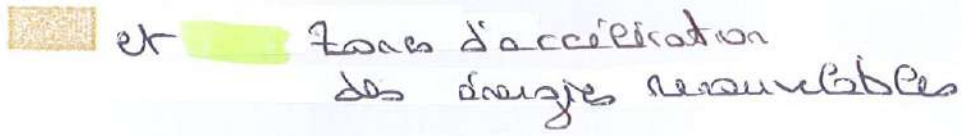 et zones d'accélération
des énergies renouvelables